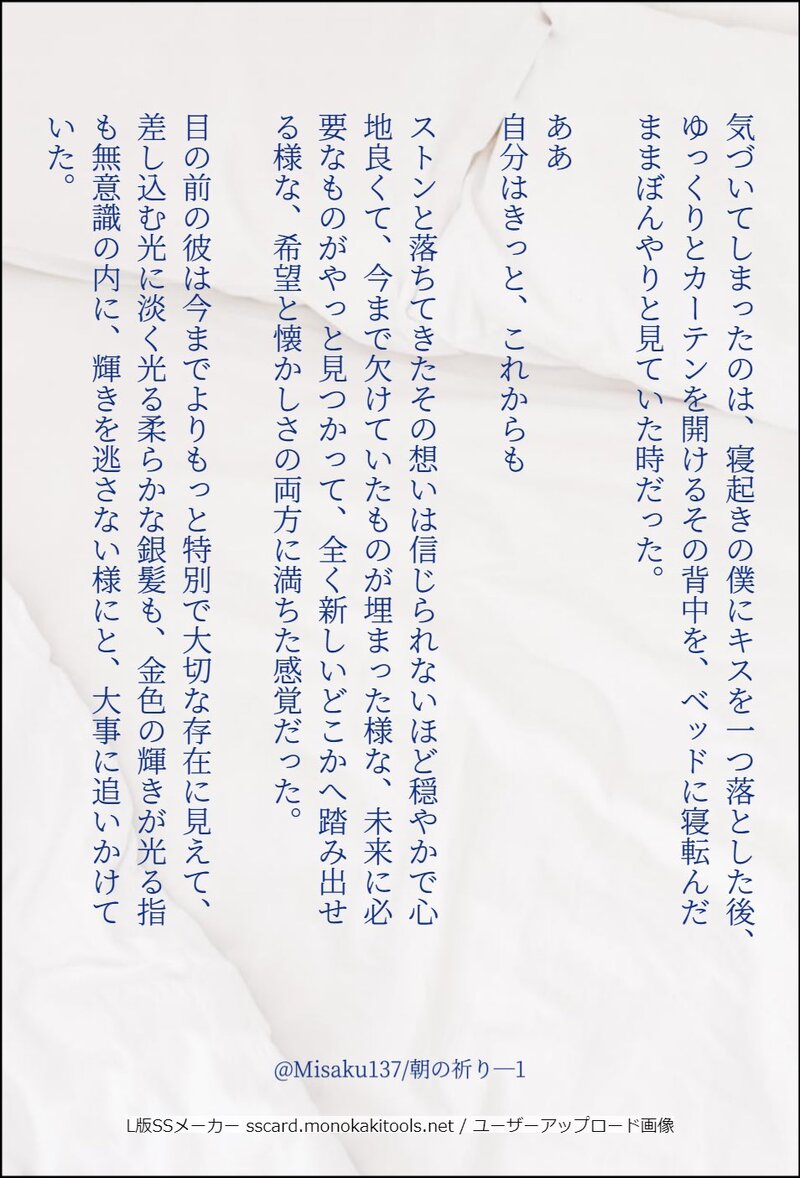 気づいてしまったのは、寝起きの僕にキスを一つ落とした後、
ゆっくりとカーテンを開けるその背中を、ベッドに寝転んだ
ままぼんやりと見ていた時だった。
ああ
自分はきっと、これからも
ストンと落ちてきたその想いは信じられないほど穏やかで心
地良くて、今まで欠けていたものが埋まった様な、未来に必
要なものがやっと見つかって、全く新しいどこかへ踏み出せ
る様な、希望と懐かしさの両方に満ちた感覚だった。
目の前の彼は今までよりもっと特別で大切な存在に見えて、
差し込む光に淡く光る柔らかな銀髪も、金色の輝きが光る指
も無意識の内に、輝きを逃さない様にと、大事に追いかけて
いた。
@Misaku137/朝の祈り―1
L版SSメーカー sscard.monokakitools.net / ユーザーアップロード画像